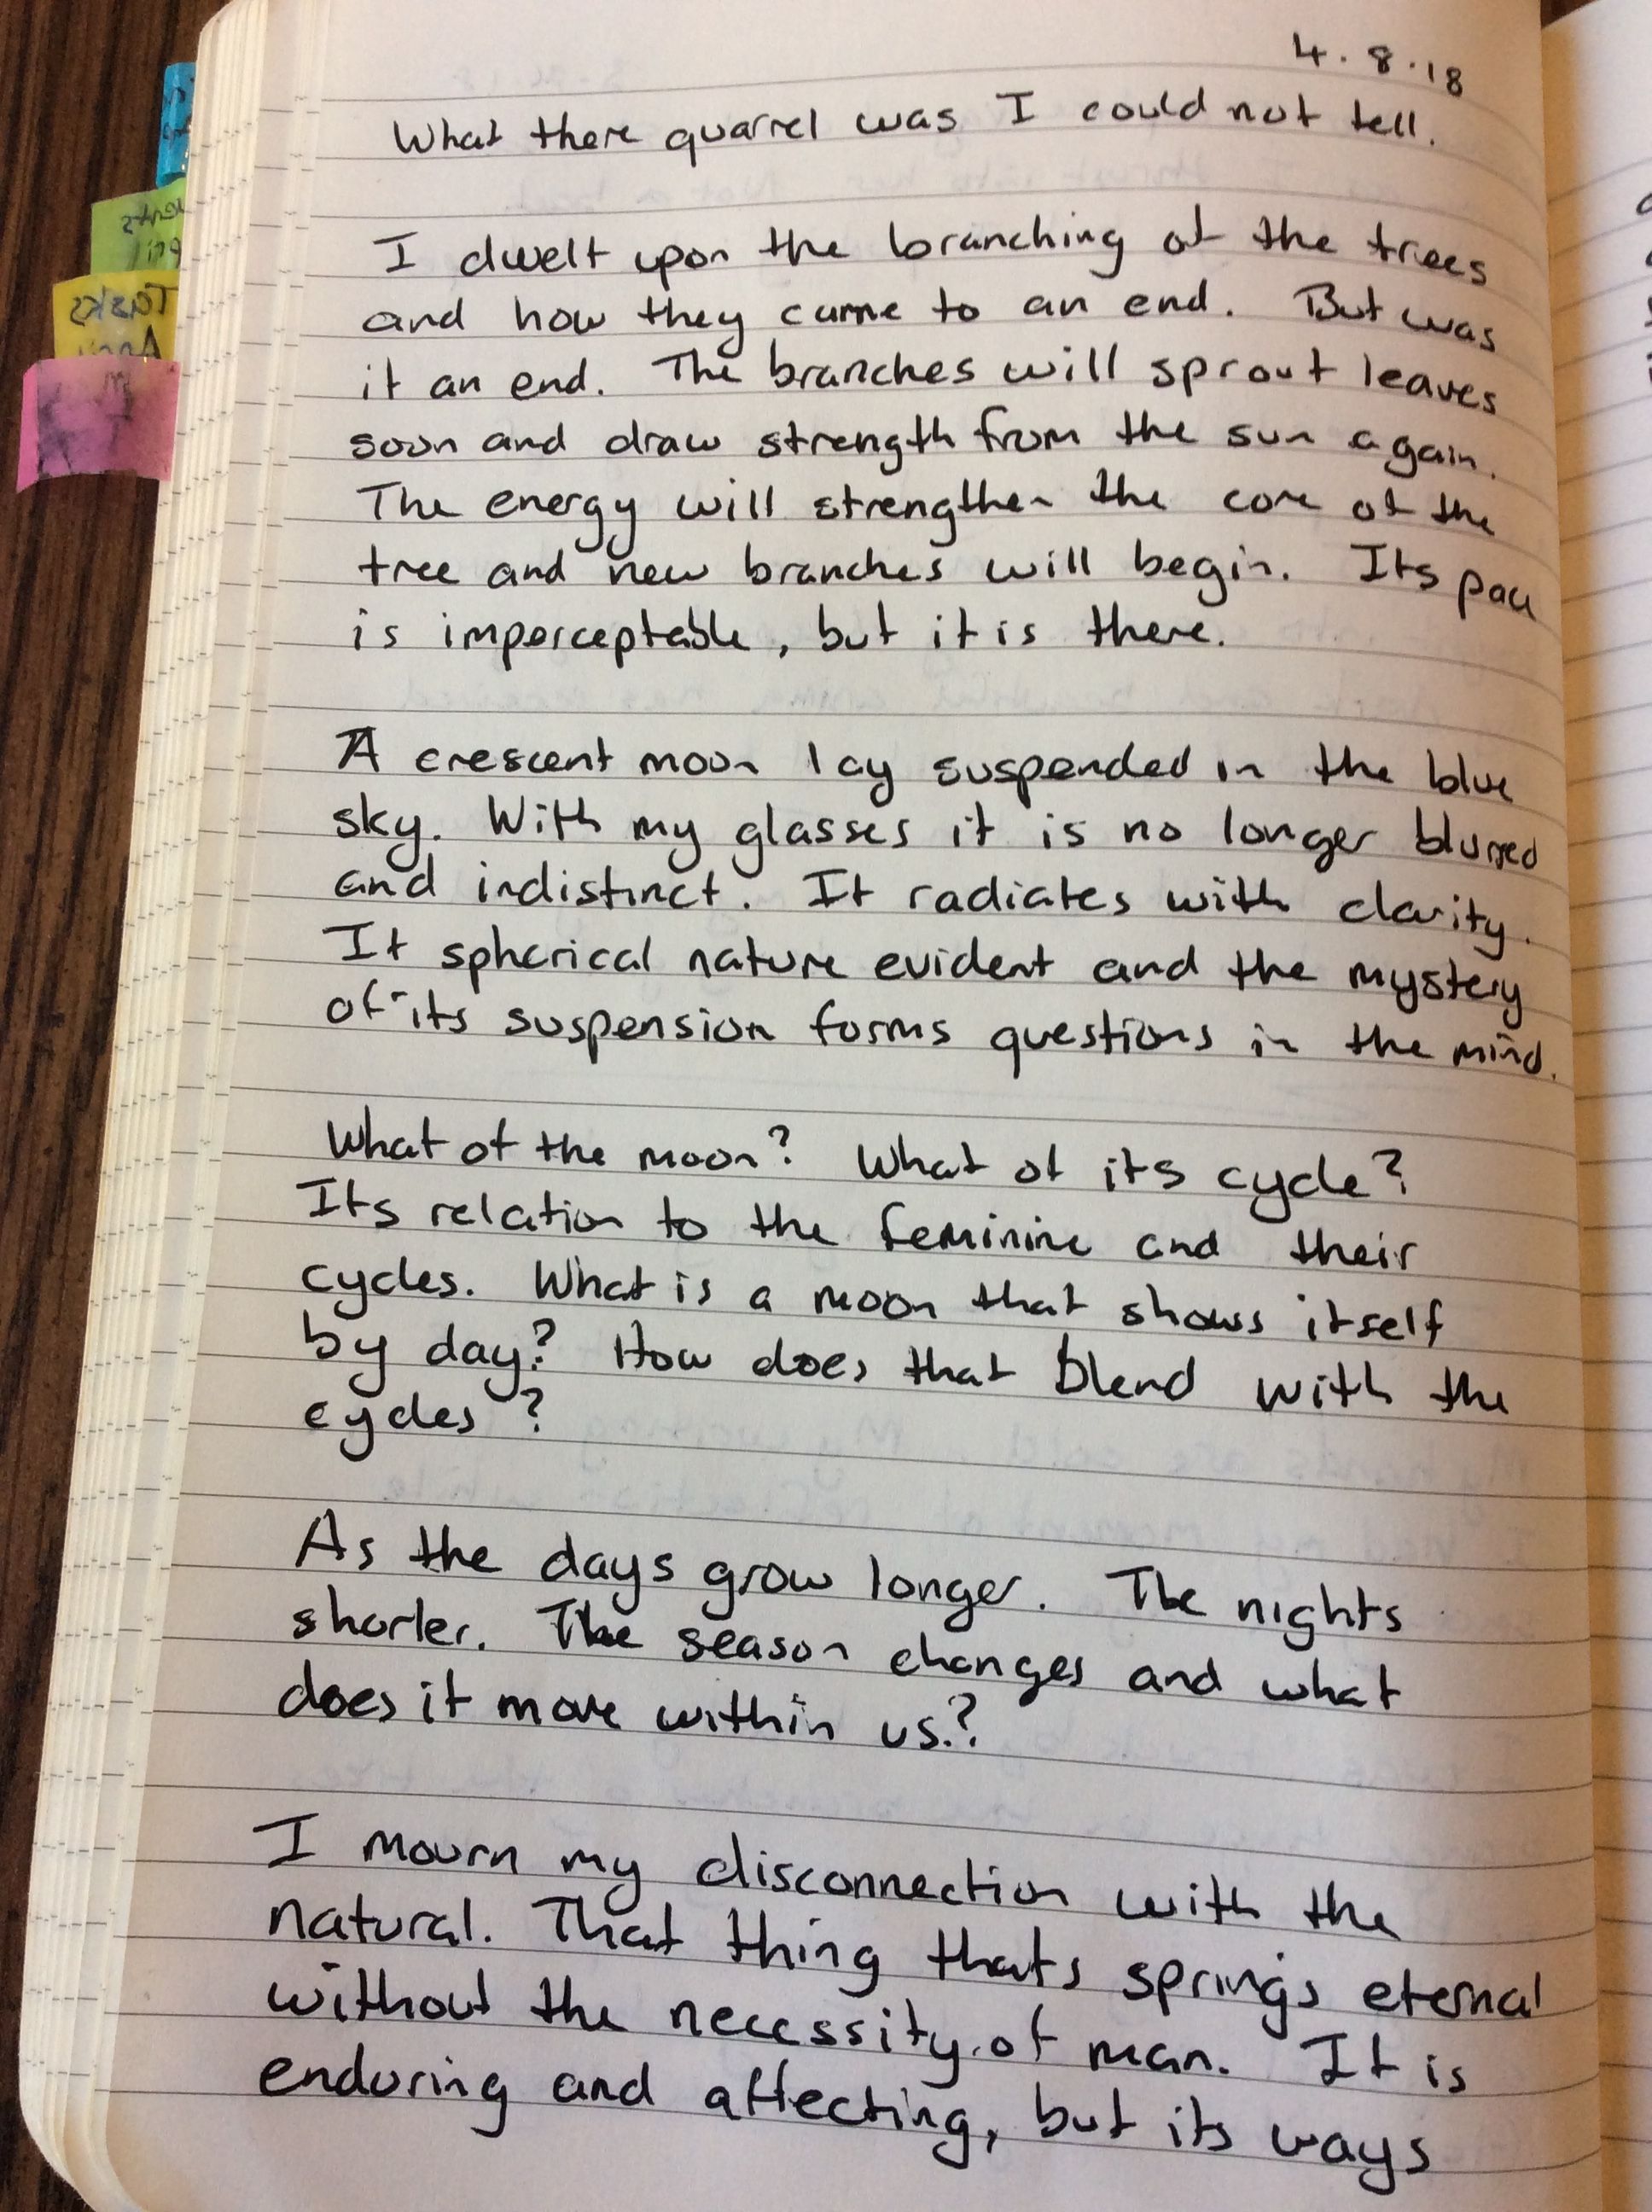 4.8.18
What there quarrel was I could not tell.
I dwelt upon the branching of the trees
and how they came to an end. But was
it an end. The branches will sprout leaves
soon and draw strength from the sun again.
The energy will strengthen the core of the
tree and new branches will begin. Its pace
is imperceptable, but it is there.
A crescent moon lay suspended in the blue
sky. With my glasses it is no longer blurred
and indistinct. It radiates with clarity.
It spherical nature evident and the mystery
of its suspension forms questions in the mind.
What of the moon? What of its cycle?
Its relation to the feminine and their
cycles. What is a moon that shows itself
by day? How does that blend with the
cycles?
As the days grow longer. The nights
shorter. The season changes and what
does it move within us.?
I mourn my disconnection with the
natural. That thing thats springs eternal
without the necessity of man. It is
enduring and affecting, but its ways
Tasks